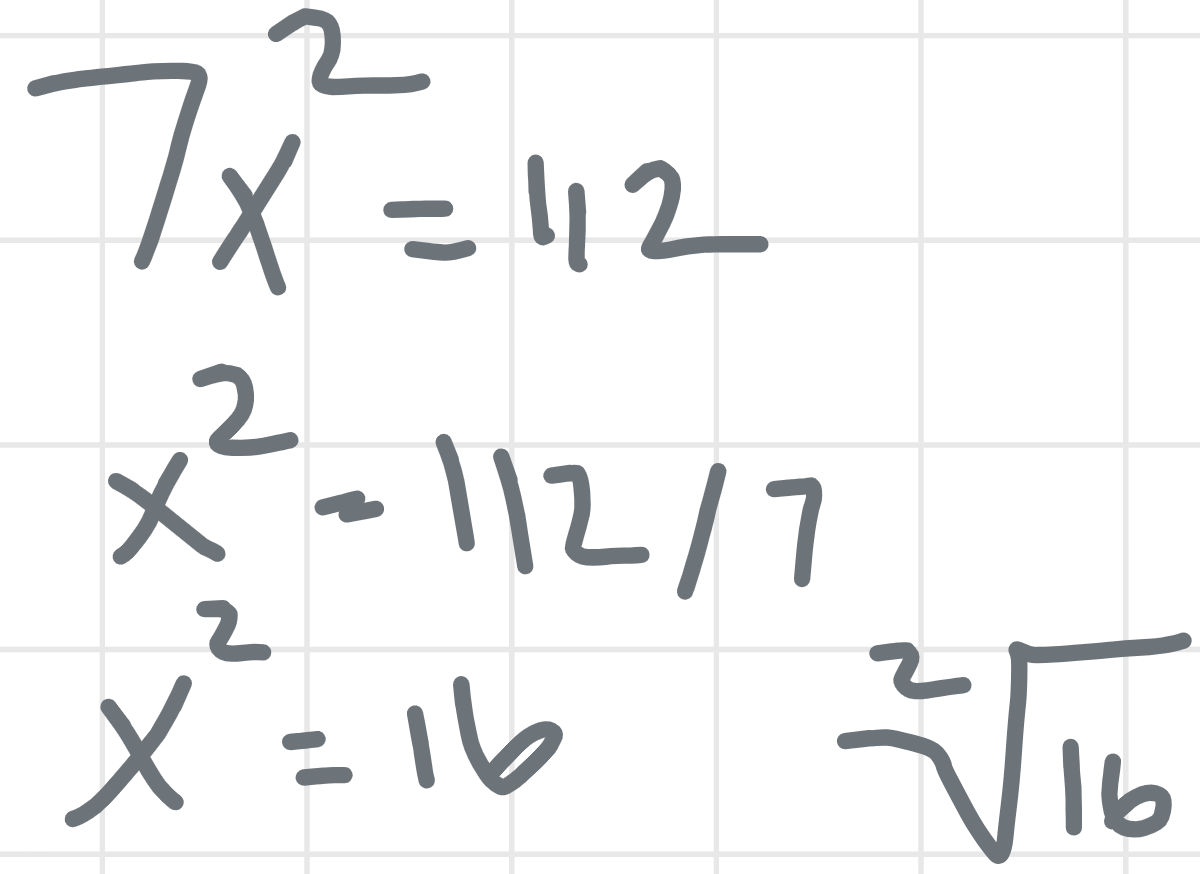 7x² = 112
x² = 112/7
x² = 16
²√16